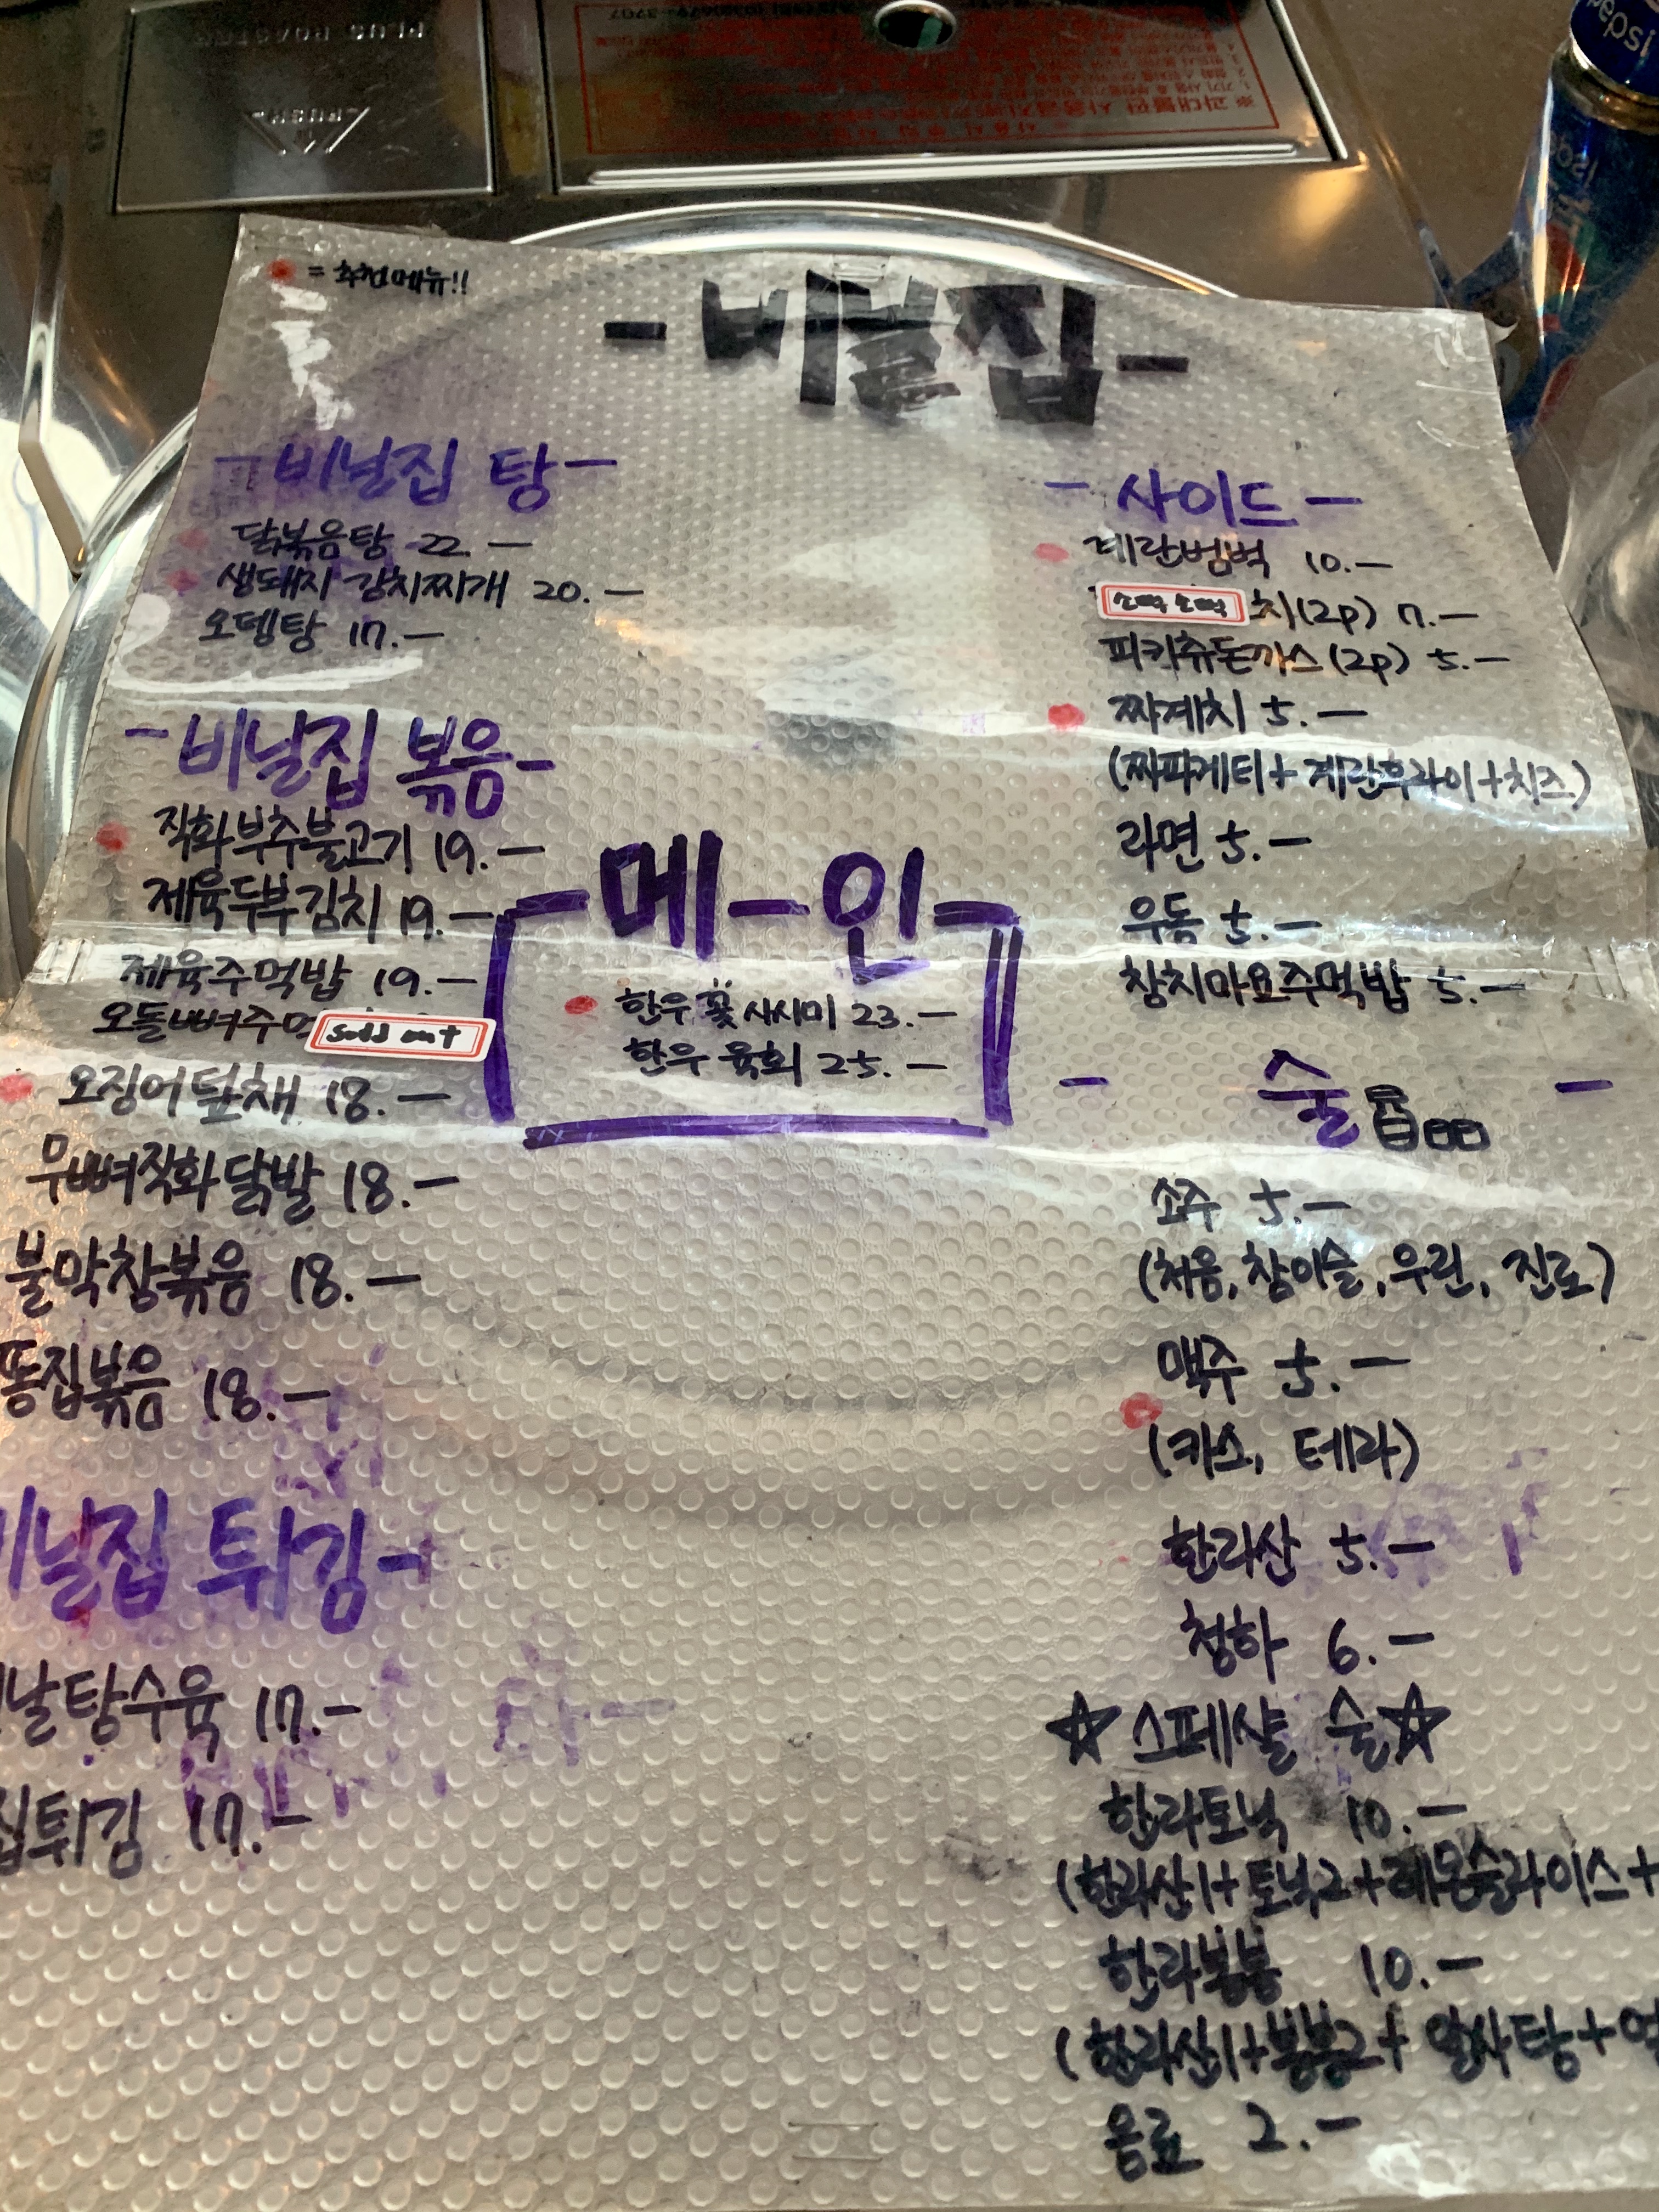 = 추천메뉴!!
-비닐집-
-비닐집 탕-
닭볶음탕 22.-
생돼지 김치찌개 20.-
오뎅탕 17.-
-비닐집 볶음-
직화부추불고기 19.-
제육두부김치 19.-
제육주먹밥 19.-
오돌뼈주먹
sold out
오징어 18.-
무뼈직화닭발 18.-
불막창볶음 18.-
똥집볶음 18.-
비닐집 튀김-
날탕수육 17.-
집튀김 17.-
-메-인-
한우 꽃 사시미 23.-
한우 육회 25.-
-사이드-
계란범벅 10.-
소떡소떡 치(2p) 7.-
피카츄돈까스(2p) 5.-
짜계치 5.-
(짜파게티+계란후라이+치즈)
라면 5.-
우동 5.-
참치마요주먹밥 5.-
- 술 -
소주 5.-
(처음, 참이슬, 우린, 진로)
맥주 5.-
(카스, 테라)
한라산 5.-
청하 6.-
☆스페샬 술☆
한라토닉 10.-
(한라산1+토닉2+레몬슬라이스+
한라봉봉 10.-
(한라산1+봉봉2+알사탕+
음료 2.-
pepsi
PUSH